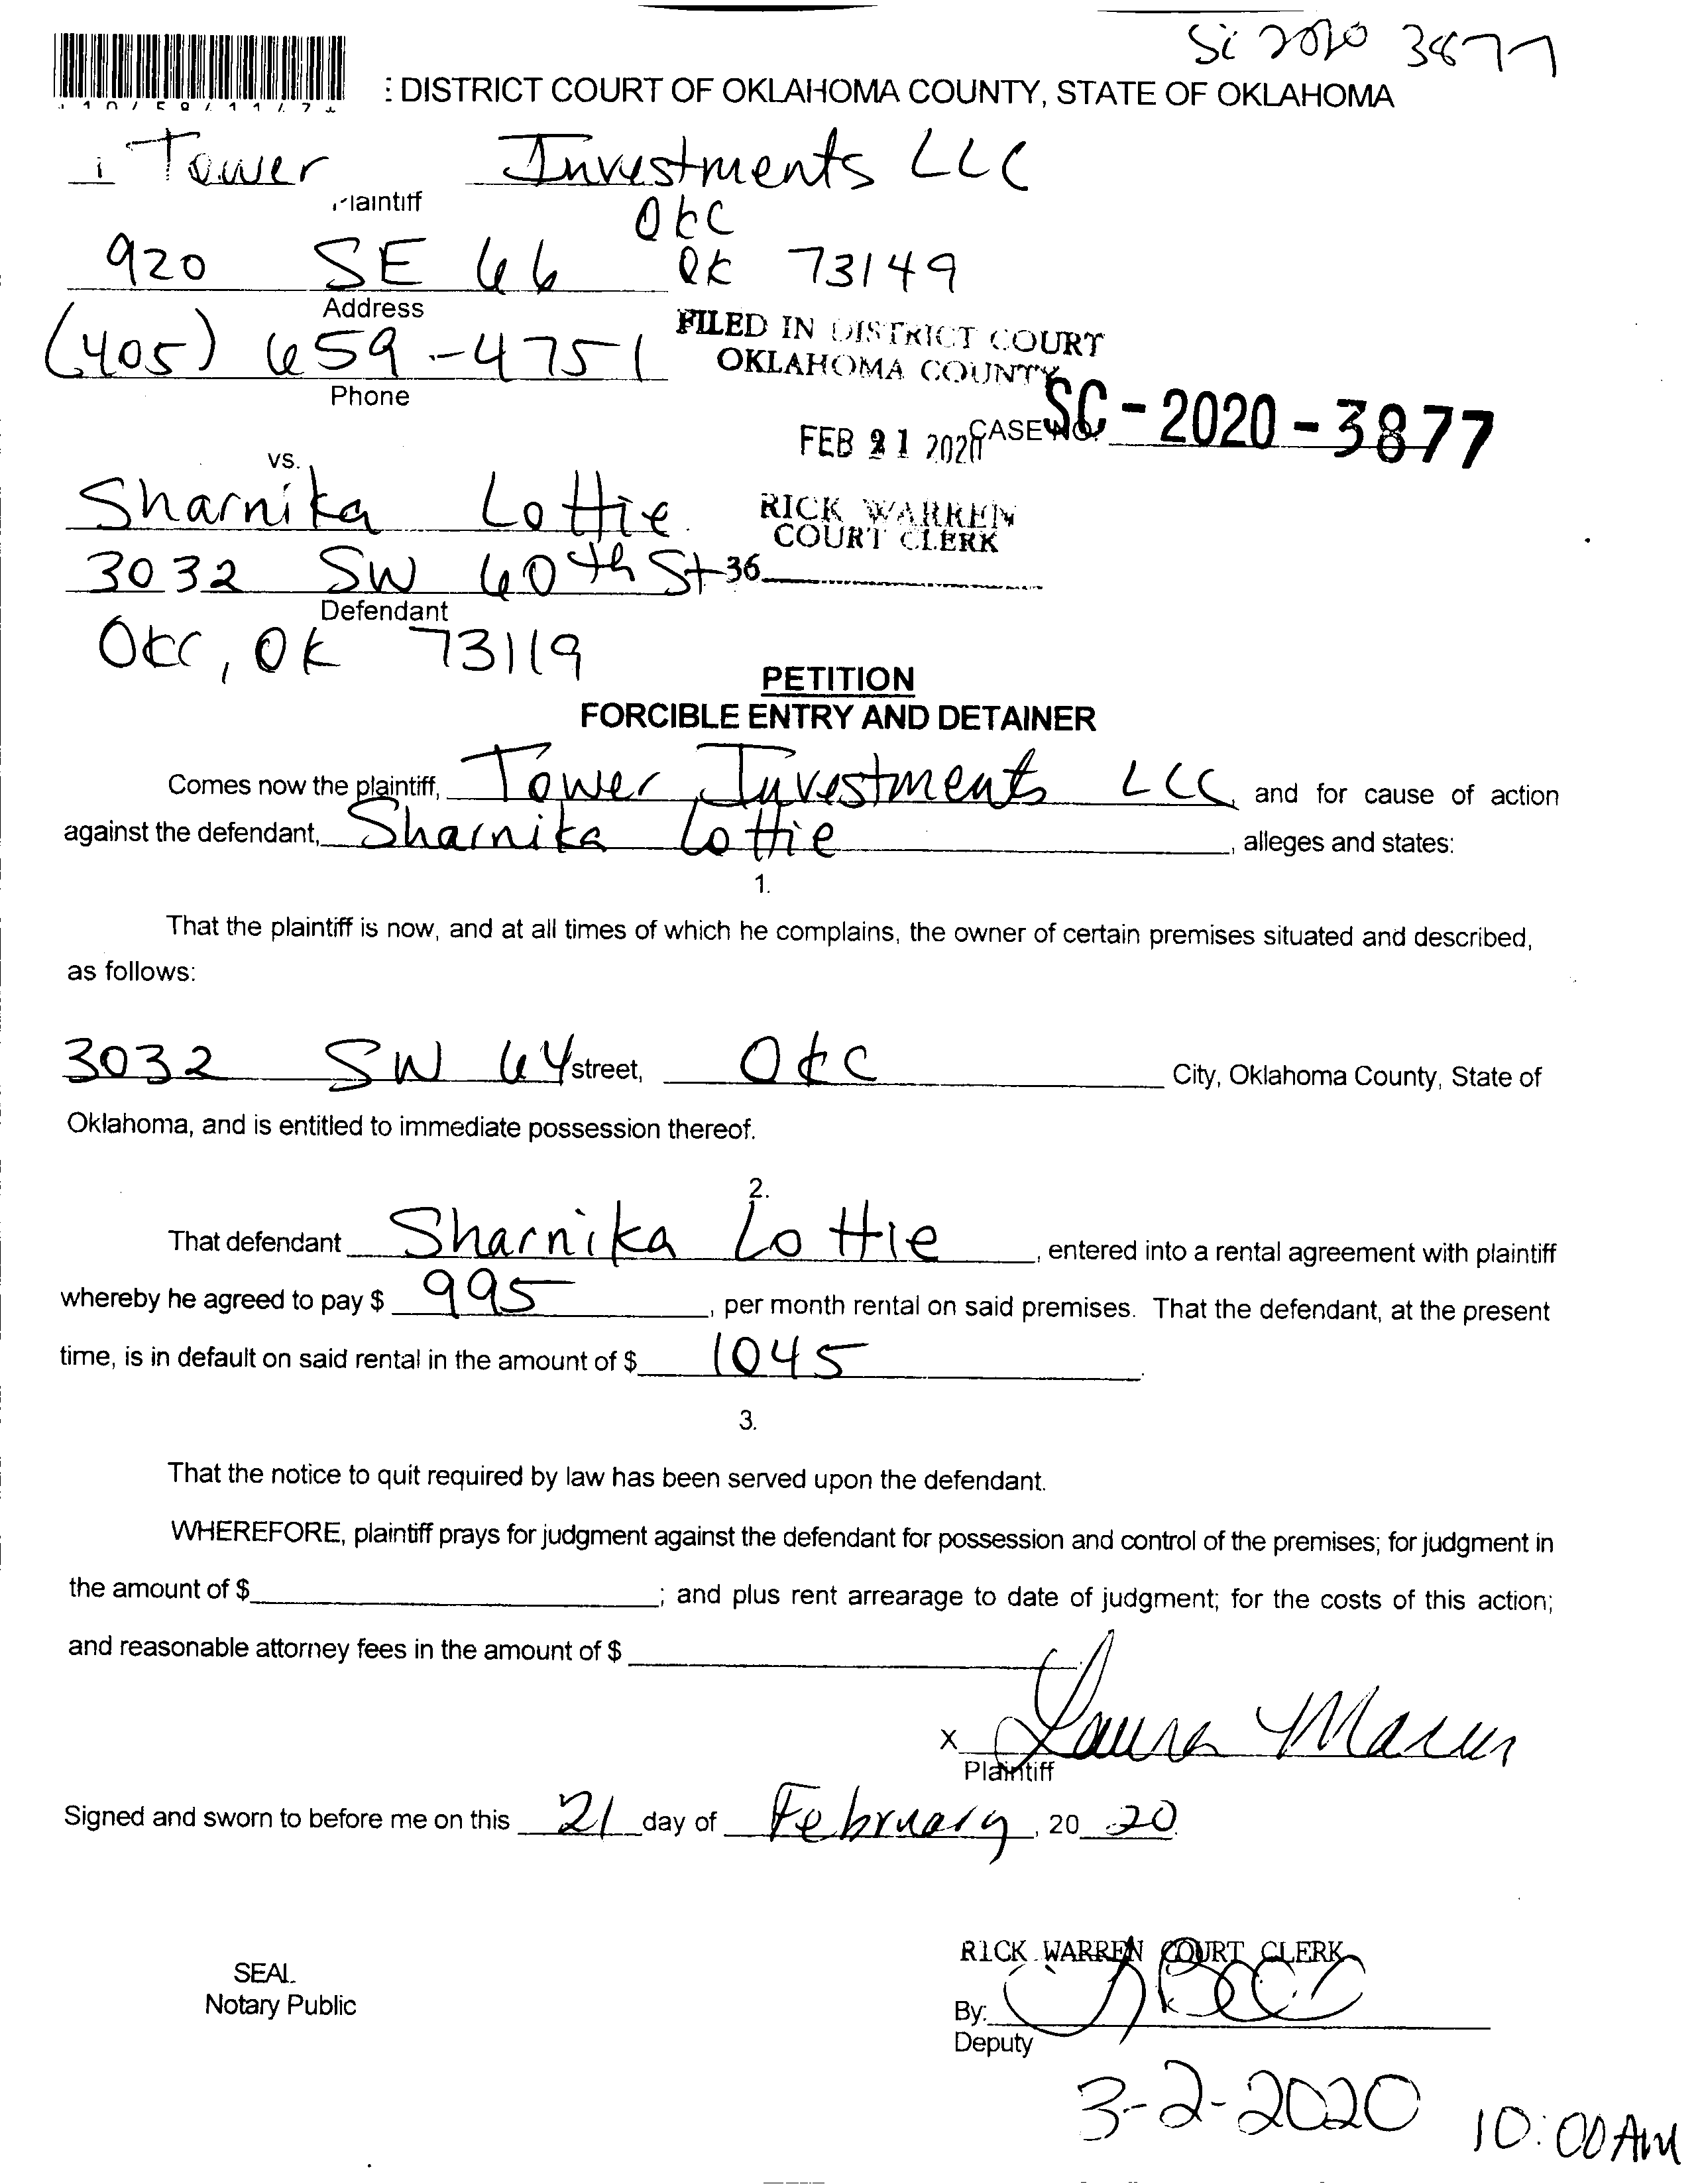 : DISTRICT COURT OF OKLAHOMA COUNTY, STATE OF OKLAHOMA
Tower Investments LLC
laintiff
OKC
920 SE 66 OK 73149
Address
(405) 659-4751
Phone
FILED IN DISTRICT COURT
OKLAHOMA COUNTY
FEB 21 2020 CASE NO. SC-2020-3877
vs.
Sharnika Lottie
RICK WARREN
COURT CLERK
3032 SW 60th St 36
Defendant
OKC, OK 73119
PETITION
FORCIBLE ENTRY AND DETAINER
Comes now the plaintiff, Tower Investments LLC, and for cause of action
against the defendant, Sharnika Lottie, alleges and states:
1.
That the plaintiff is now, and at all times of which he complains, the owner of certain premises situated and described,
as follows:
3032 SW 64 street, OKC City, Oklahoma County, State of
Oklahoma, and is entitled to immediate possession thereof.
2.
That defendant Sharnika Lottie, entered into a rental agreement with plaintiff
whereby he agreed to pay $ 995, per month rental on said premises. That the defendant, at the present
time, is in default on said rental in the amount of $ 1045.
3.
That the notice to quit required by law has been served upon the defendant.
WHEREFORE, plaintiff prays for judgment against the defendant for possession and control of the premises; for judgment in
the amount of $ ; and plus rent arrearage to date of judgment; for the costs of this action;
and reasonable attorney fees in the amount of $
X Laura
Plaintiff
Signed and sworn to before me on this 21 day of February, 20 20.
RICK WARREN COURT CLERK
SEAL
Notary Public
By:
Deputy
3-2-2020 10:00 AM